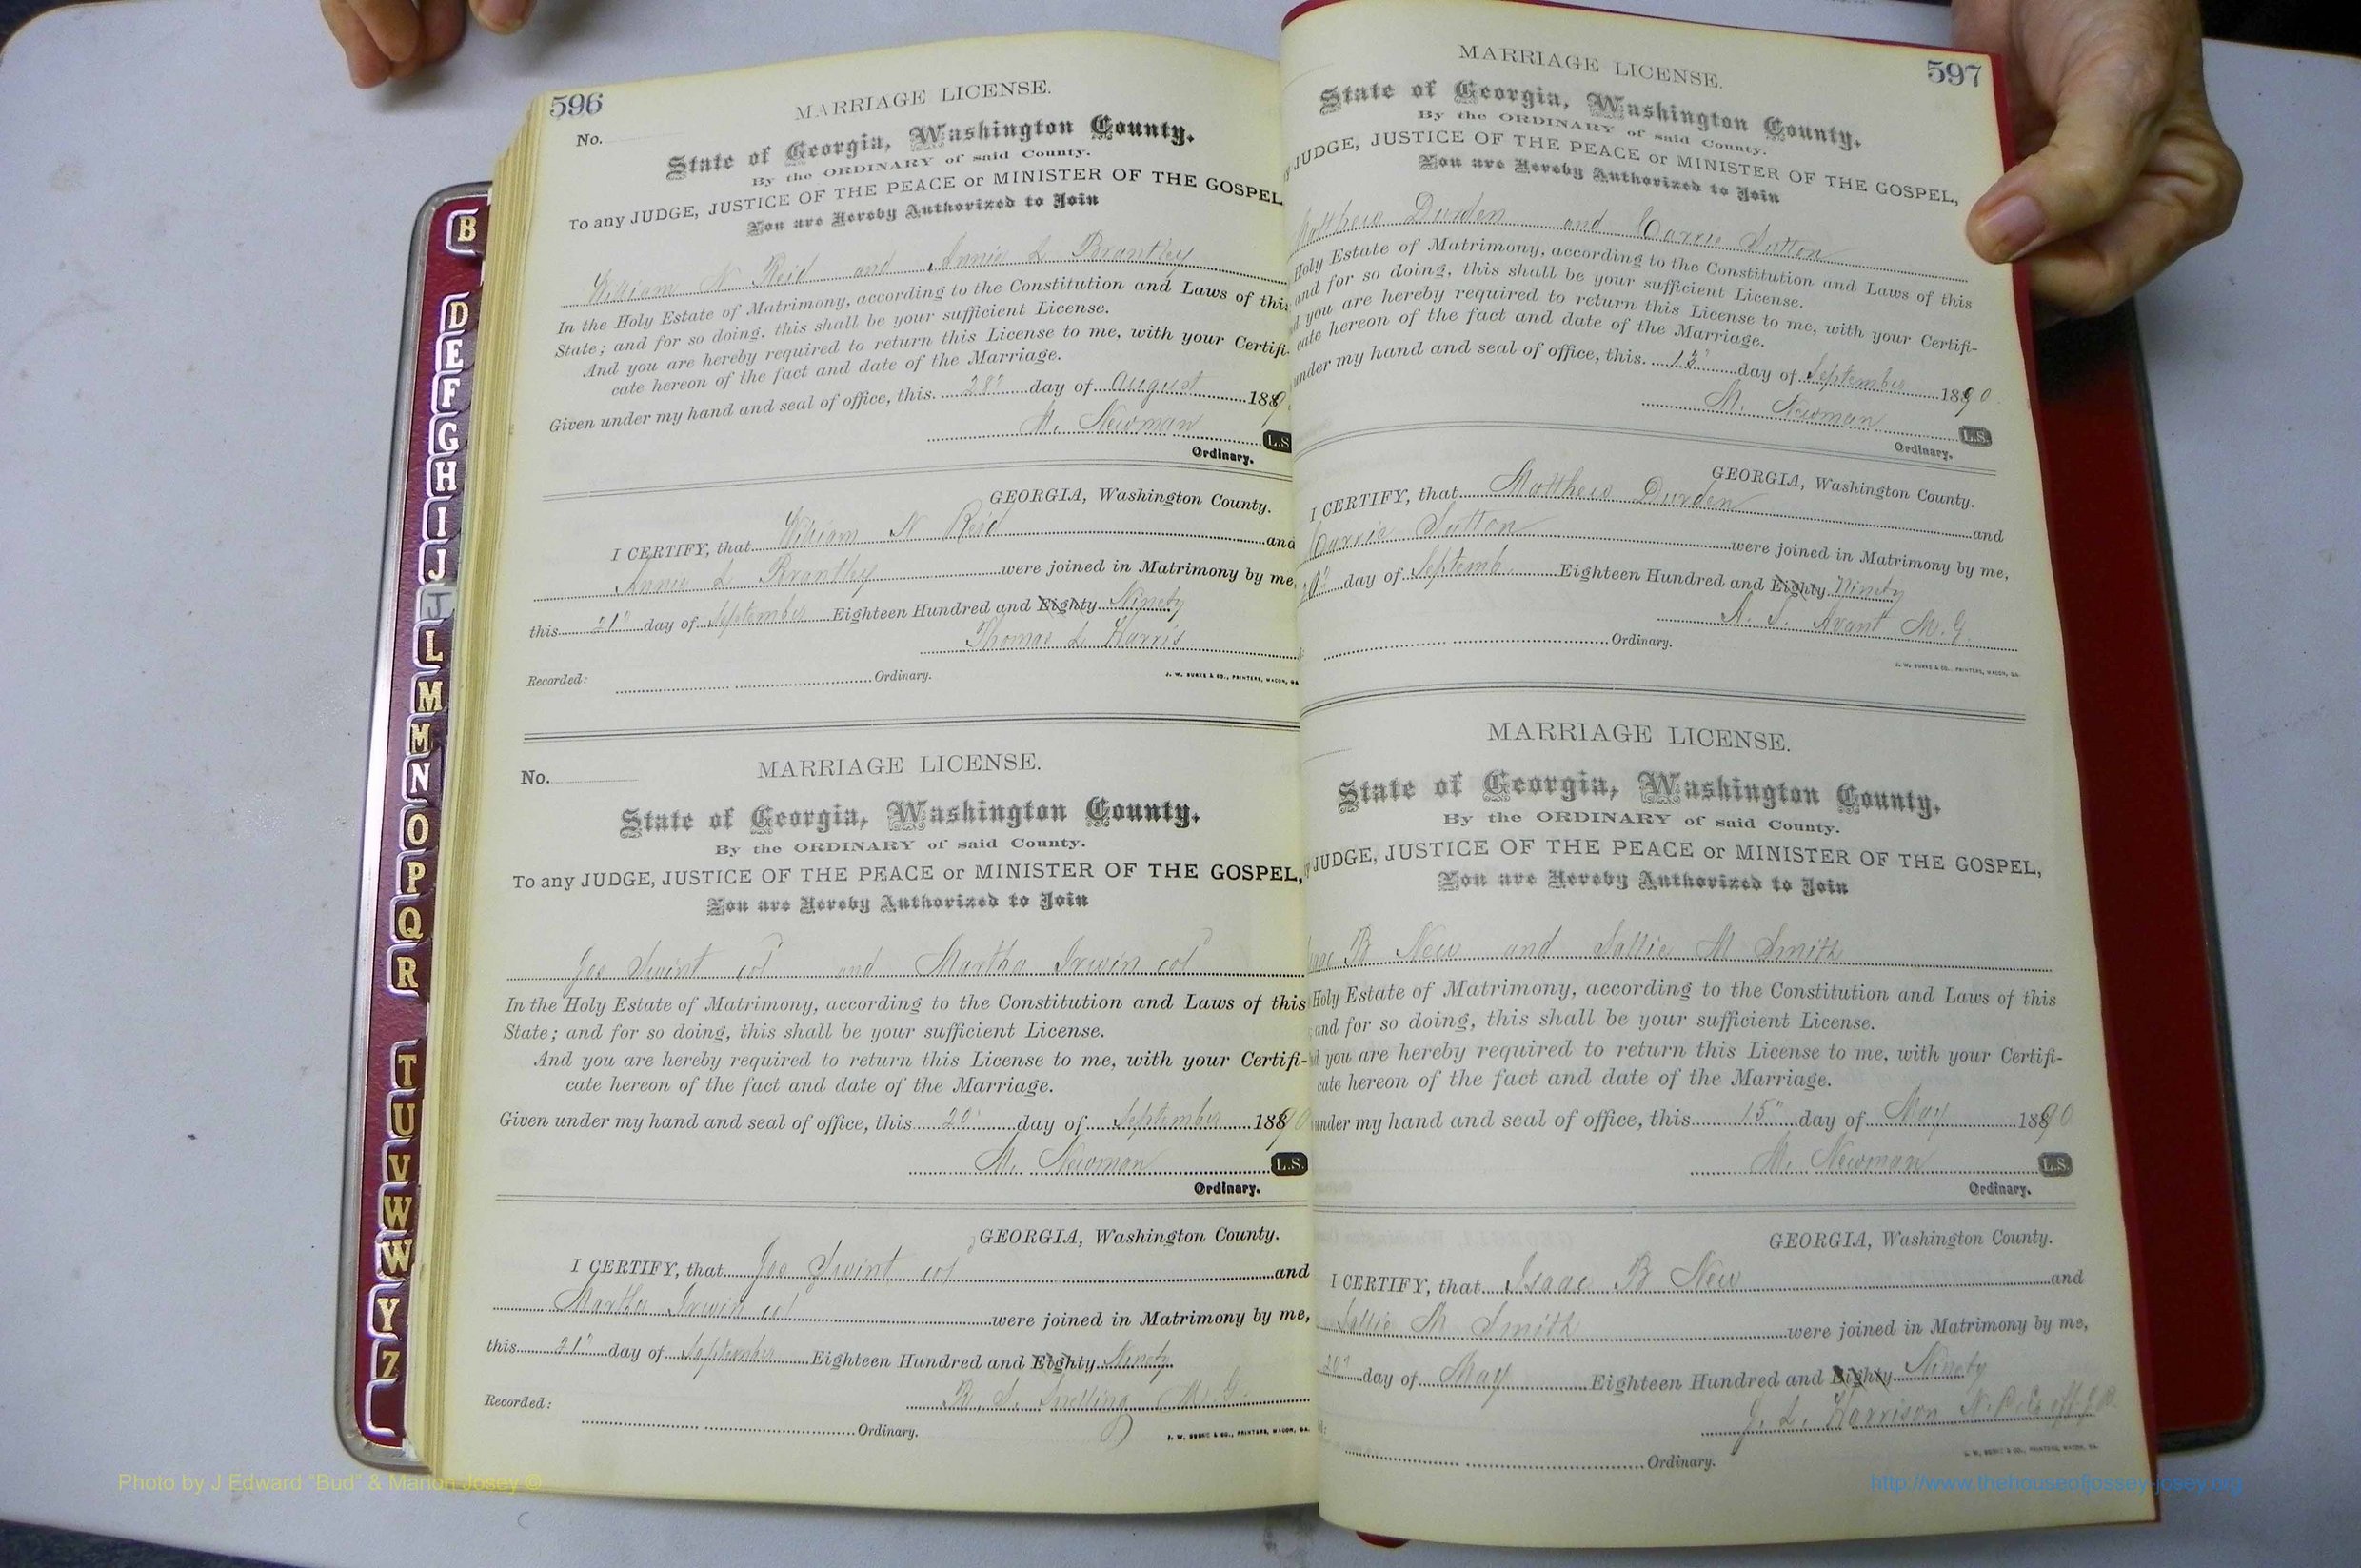 B
D
E
F
G
H
I
J
J
L
M
M
N
O
P
Q
R
T
U
V
W
W
Y
Z
596
MARRIAGE LICENSE.
No.
State of Georgia, Washington County.
By the ORDINARY of said County.
To any JUDGE, JUSTICE OF THE PEACE or MINISTER OF THE GOSPEL
You are Hereby Authorized to Join
William N Reid and Annie L Brantley
In the Holy Estate of Matrimony, according to the Constitution and Laws of this
State; and for so doing, this shall be your sufficient License.
And you are hereby required to return this License to me, with your Certifi-
cate hereon of the fact and date of the Marriage.
Given under my hand and seal of office, this 28" day of August 189
M. Newman L.S
Ordinary.
GEORGIA, Washington County.
I CERTIFY, that William N Reid and
Annie L Brantley were joined in Matrimony by me,
this 21" day of September Eighteen Hundred and Eighty Ninety
Thomas L Harris
Recorded: Ordinary.
J. W. BURKE & CO., PRINTERS, MACON, GA.
No. MARRIAGE LICENSE.
State of Georgia, Washington County.
By the ORDINARY of said County.
To any JUDGE, JUSTICE OF THE PEACE or MINISTER OF THE GOSPEL,
You are Hereby Authorized to Join
Joe Swint col and Martha Irwin col
In the Holy Estate of Matrimony, according to the Constitution and Laws of this
State; and for so doing, this shall be your sufficient License.
And you are hereby required to return this License to me, with your Certifi-
cate hereon of the fact and date of the Marriage.
Given under my hand and seal of office, this 20" day of September 1890
M. Newman L.S.
Ordinary.
GEORGIA, Washington County.
I CERTIFY, that Joe Swint col and
Martha Irwin col were joined in Matrimony by me,
this 21" day of September Eighteen Hundred and Eighty Ninety
R. S. Snelling M. G.
Recorded: Ordinary.
J. W. BURKE & CO., PRINTERS, MACON, GA.
597
MARRIAGE LICENSE.
State of Georgia, Washington County.
By the ORDINARY of said County.
JUDGE, JUSTICE OF THE PEACE or MINISTER OF THE GOSPEL,
You are Hereby Authorized to Join
Matthew Durden and Carrie Sutton
Holy Estate of Matrimony, according to the Constitution and Laws of this
and for so doing, this shall be your sufficient License.
you are hereby required to return this License to me, with your Certifi-
cate hereon of the fact and date of the Marriage.
under my hand and seal of office, this 13" day of September 1890
M. Newman L.S.
Ordinary.
GEORGIA, Washington County.
I CERTIFY, that Matthew Durden and
Carrie Sutton were joined in Matrimony by me,
day of Septemb Eighteen Hundred and Eighty Ninety
A. J. Avant M. G.
Ordinary.
J. W. BURKE & CO., PRINTERS, MACON, GA.
MARRIAGE LICENSE.
State of Georgia, Washington County.
By the ORDINARY of said County.
JUDGE, JUSTICE OF THE PEACE or MINISTER OF THE GOSPEL,
You are Hereby Authorized to Join
Isaac B New and Sallie M Smith
Holy Estate of Matrimony, according to the Constitution and Laws of this
and for so doing, this shall be your sufficient License.
you are hereby required to return this License to me, with your Certifi-
cate hereon of the fact and date of the Marriage.
under my hand and seal of office, this 15" day of May 1890
M. Newman L.S.
Ordinary.
GEORGIA, Washington County.
I CERTIFY, that Isaac B New and
Sallie M Smith were joined in Matrimony by me,
20" day of May Eighteen Hundred and Eighty Ninety
J. L. Harrison N. P. Ex off J. P.
Ordinary.
J. W. BURKE & CO., PRINTERS, MACON, GA.
Photo by J Edward "Bud" & Marion Josey ©
http://www.thehouseofjossey-josey.org